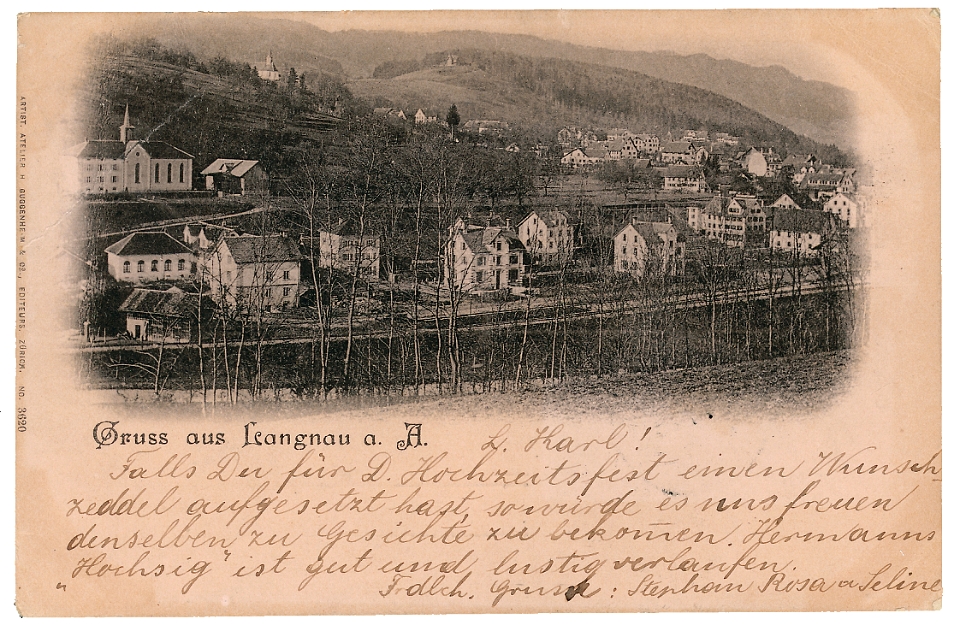 ARTIST. ATELIER H. GUGGENHEIM & Co., EDITEURS, ZÜRICH, No. 3620
Gruss aus Langnau a. A.
L. Karl!
Falls Du für D. Hochzeitsfest einen Wunsch-
zeddel aufgesetzt hast, so würde es uns freuen
denselben zu Gesichte zu bekom̅en. Hermanns
„Hochsig" ist gut und lustig verlaufen.
Frdlch. Gruss : Stephan Rosa a Seline